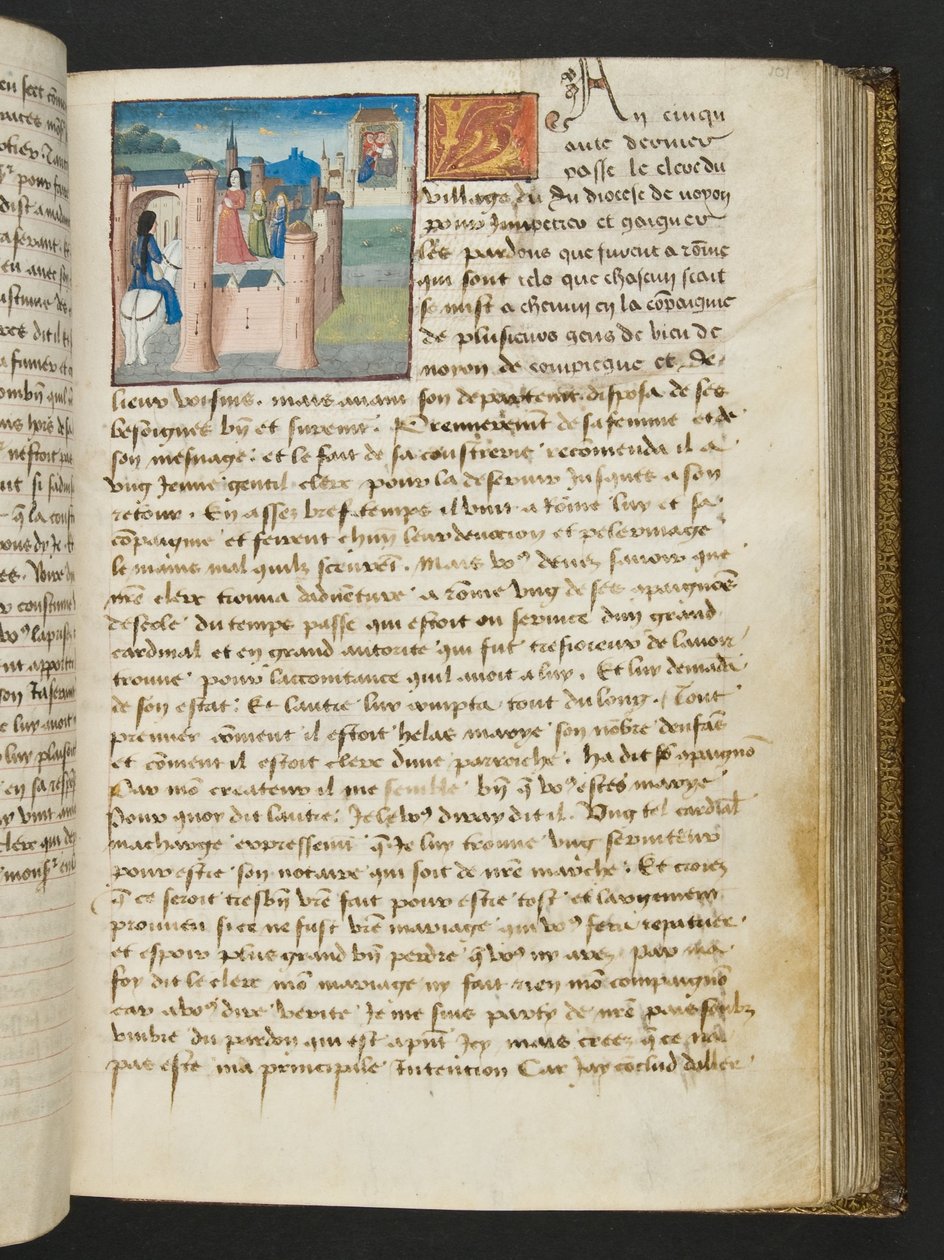 en feet com
dist a mada
en avec so
dit il
fumer et
ombn quil
hors de sa
nestoit pas
q la coust
vous dy je
laprisa
son Jasera
luy plaisoit
en sa
luy vint au
clerc qui de
101
L An cinqu
ante dernier
passe le clerc du
village du du diocese de noyon
pour Impetrer et gaigner
les pardons que furent a rome
qui sont telz que chascun scait
se mist a chemin en la compaignie
de plusieurs gens de bien de
noyon de compiegne et de
lieux voisins . mais avant son departement disposa de ses
besoignes bn et seurement . Premierement de sa femme et de
son mesnage : et le fait de sa coustrerie recomenda il a
ung Jeune gentil clerc pour la desservir Jusques a son
retour . En assez bref temps il vint a Rome luy et sa
compaignie et feirent chun leur devocion et pelerinage
le mains mal quilz sceurent . Mais vo9 devez savoir que
nre clerc trouva daventure a rome ung de ses compaignons
descole du temps passe qui estoit ou service dun grand
cardinal et en grand autorite qui fut tresioieux de lavoir
trouve pour lacointance quil avoit a luy . Et luy demada
de son estat : Et lautre luy compta tout du long . Tout
premier coment il estoit helas marye son nombre denfans
et coment il estoit clerc dune parroiche . ha dit son compaignon
Par mon createur il me semble bn q vo9 estes marye
Pour quoy dit lautre : Je le vo9 diray dit il . Ung tel cardinal
macharge expressement q Je luy trouve ung serviteur
pour estre son notaire qui soit de nre marche . Et croiez
q ce seroit tresbn vre fait pour estre tost et largement
prouveu si ce ne fust vre mariage qui vo9 fera repatrier
et espoir plus grand bn perdre q vo9 ny avez . Par ma
foy dit le clerc mon mariage ny fait rien mon compaignon
car a vo9 dire verite Je me suis party de nre pais soubz
umbre du pardon qui est apnt Icy mais creez q ce na
pas este ma principalle Intencion Car Jay conclud daller